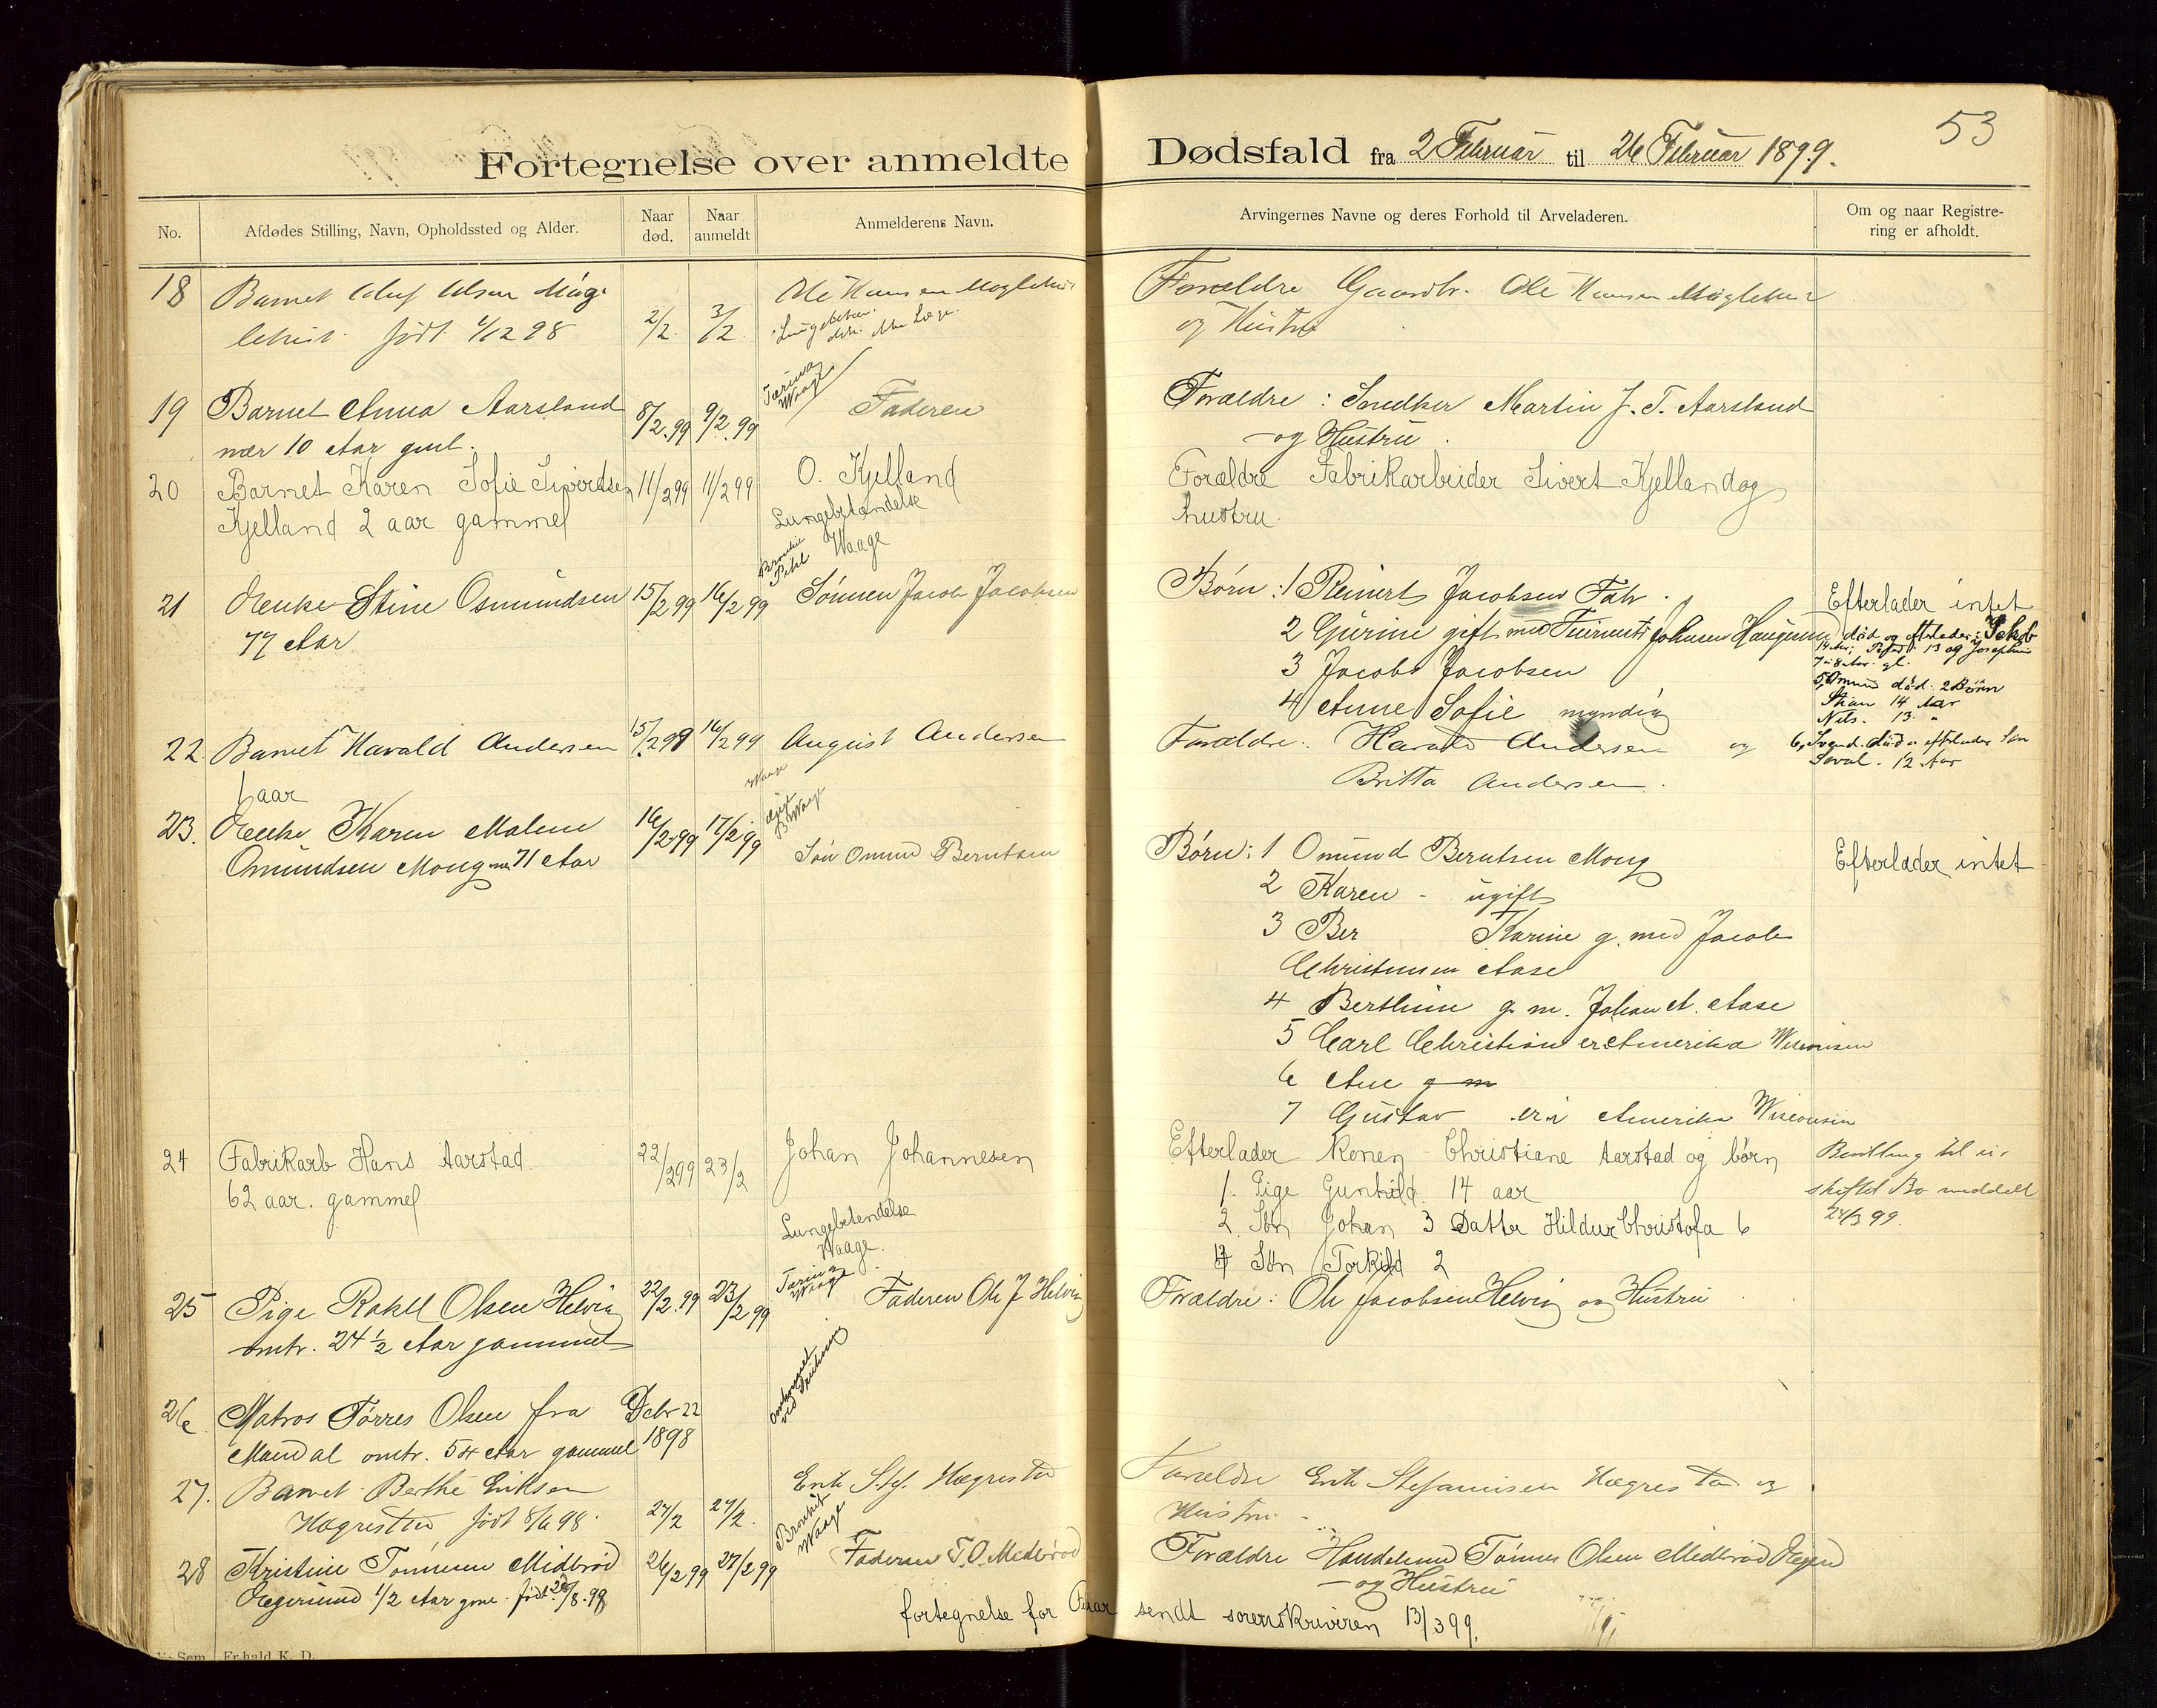 53
Fortegnelse over anmeldte Dødsfald fra 2 Februar til 26 Februar 1899.
No.
Afdødes Stilling, Navn, Opholdssted og Alder.
Naar død.
Naar anmeldt
Anmelderens Navn.
Arvingernes Navne og deres Forhold til Arveladeren.
Om og naar Registre-
ring er afholdt.
18 Barnet Oluf Olsen Møg-
lehuit. født 1/12 98
2/2. 3/2.
Ole Hansen
Forældre Gaardbr. Ole Hansen
og Hustru
19 Barnet Anna Aarsland
nær 10 Aar gml.
8/2.99 9/2.99
Waage
Faderen
Forældre : Snedker Martin J. T. Aarsland
og Hustru.
20 Barnet Karen Sofie Sivertsen
Kjelland 2 aar gammel
11/2 99 11/2 99
O. Kjelland
Lungebetændelse
Waage
Forældre Fabrikarbeider Sivert Kjelland og
hustru.
21 Enke Stine Osmundsen
77 Aar
15/2 99 16/2 99
Sønnen Jacob Jacobsen
Børn : 1 Reinert Jacobsen
2 Gurine gift med Johnsen Haugesund
3 Jacob Jacobsen
4 Anne Sofie myndig
Efterlader intet
død og efterlader: Jakob
14 Aar; 13 og Josephine
7-8 Aar gl.
5, Omund død. 2 Børn
14 Aar
Nils. 13 "
6, død efterlader Søn
12 Aar
22. Barnet Harald Andersen
1 aar
15/2 99 16/2 99
August Andersen
Waage
Forældre. Harald Andersen og
Britta Andersen.
23. Enke Karen Malene
Omundsen Mong 71 Aar
16/2 99 17/2 99
Waage
Søn Omund Berntsen
Børn: 1 Omund Berntsen Mong
2 Karen - ugift
3 Ber Karine g. med Jacob
Christensen Aase
4 Berthine g. m. Johan A. Aase
5 Carl Christian er Amerika Wisconsin
6 Ane g m
7 Gustav er i Amerika Wisconsin
Efterlader intet
24 Fabrikarb Hans Aarstad
62 aar. gammel
22/2 99 23/2
Johan Johannesen
Lungebetendelse
Waage.
Efterlader Konen Christiane Aarstad og børn
1. Pige Gunhild 14 aar
2. Søn Johan 3 Datter Hildur Christofa 6
4 Søn Torkild 2
Bevilling til ui-
skiftet Bo meddelt
24/3 99.
25 Pige Rakel Olsen Helvig
omtr. 24 ½ Aar gammel
22/2.99 23/2 99
Waage
Faderen Ole J Helvig
Forældre: Ole Jacobsen Helvig og Hustru
26 Matros Tørres Olsen fra
Mandal omtr. 54 Aar gammel
Debr 22
1898
Omkommet
ved Drukning
27. Barnet Berthe Eriksen
Hægrestad født 8/6 98.
27/2 27/2.
Erik Stef. Hægrestad
Bronkit
Waage
Forældre Erik Stefanisen Hægrestad og
Hustru
28 Kristine Tønnesen Midbrød
Egersund 1/2 Aar gml. født 28/8.98
26/2 99 27/2 99
Faderen T. O. Midbrød
Forældre Handelsmd Tønnes Olsen Midbrød Egersd
og Hustru
fortegnelse for sendt sorenskriveren 13/3 99.